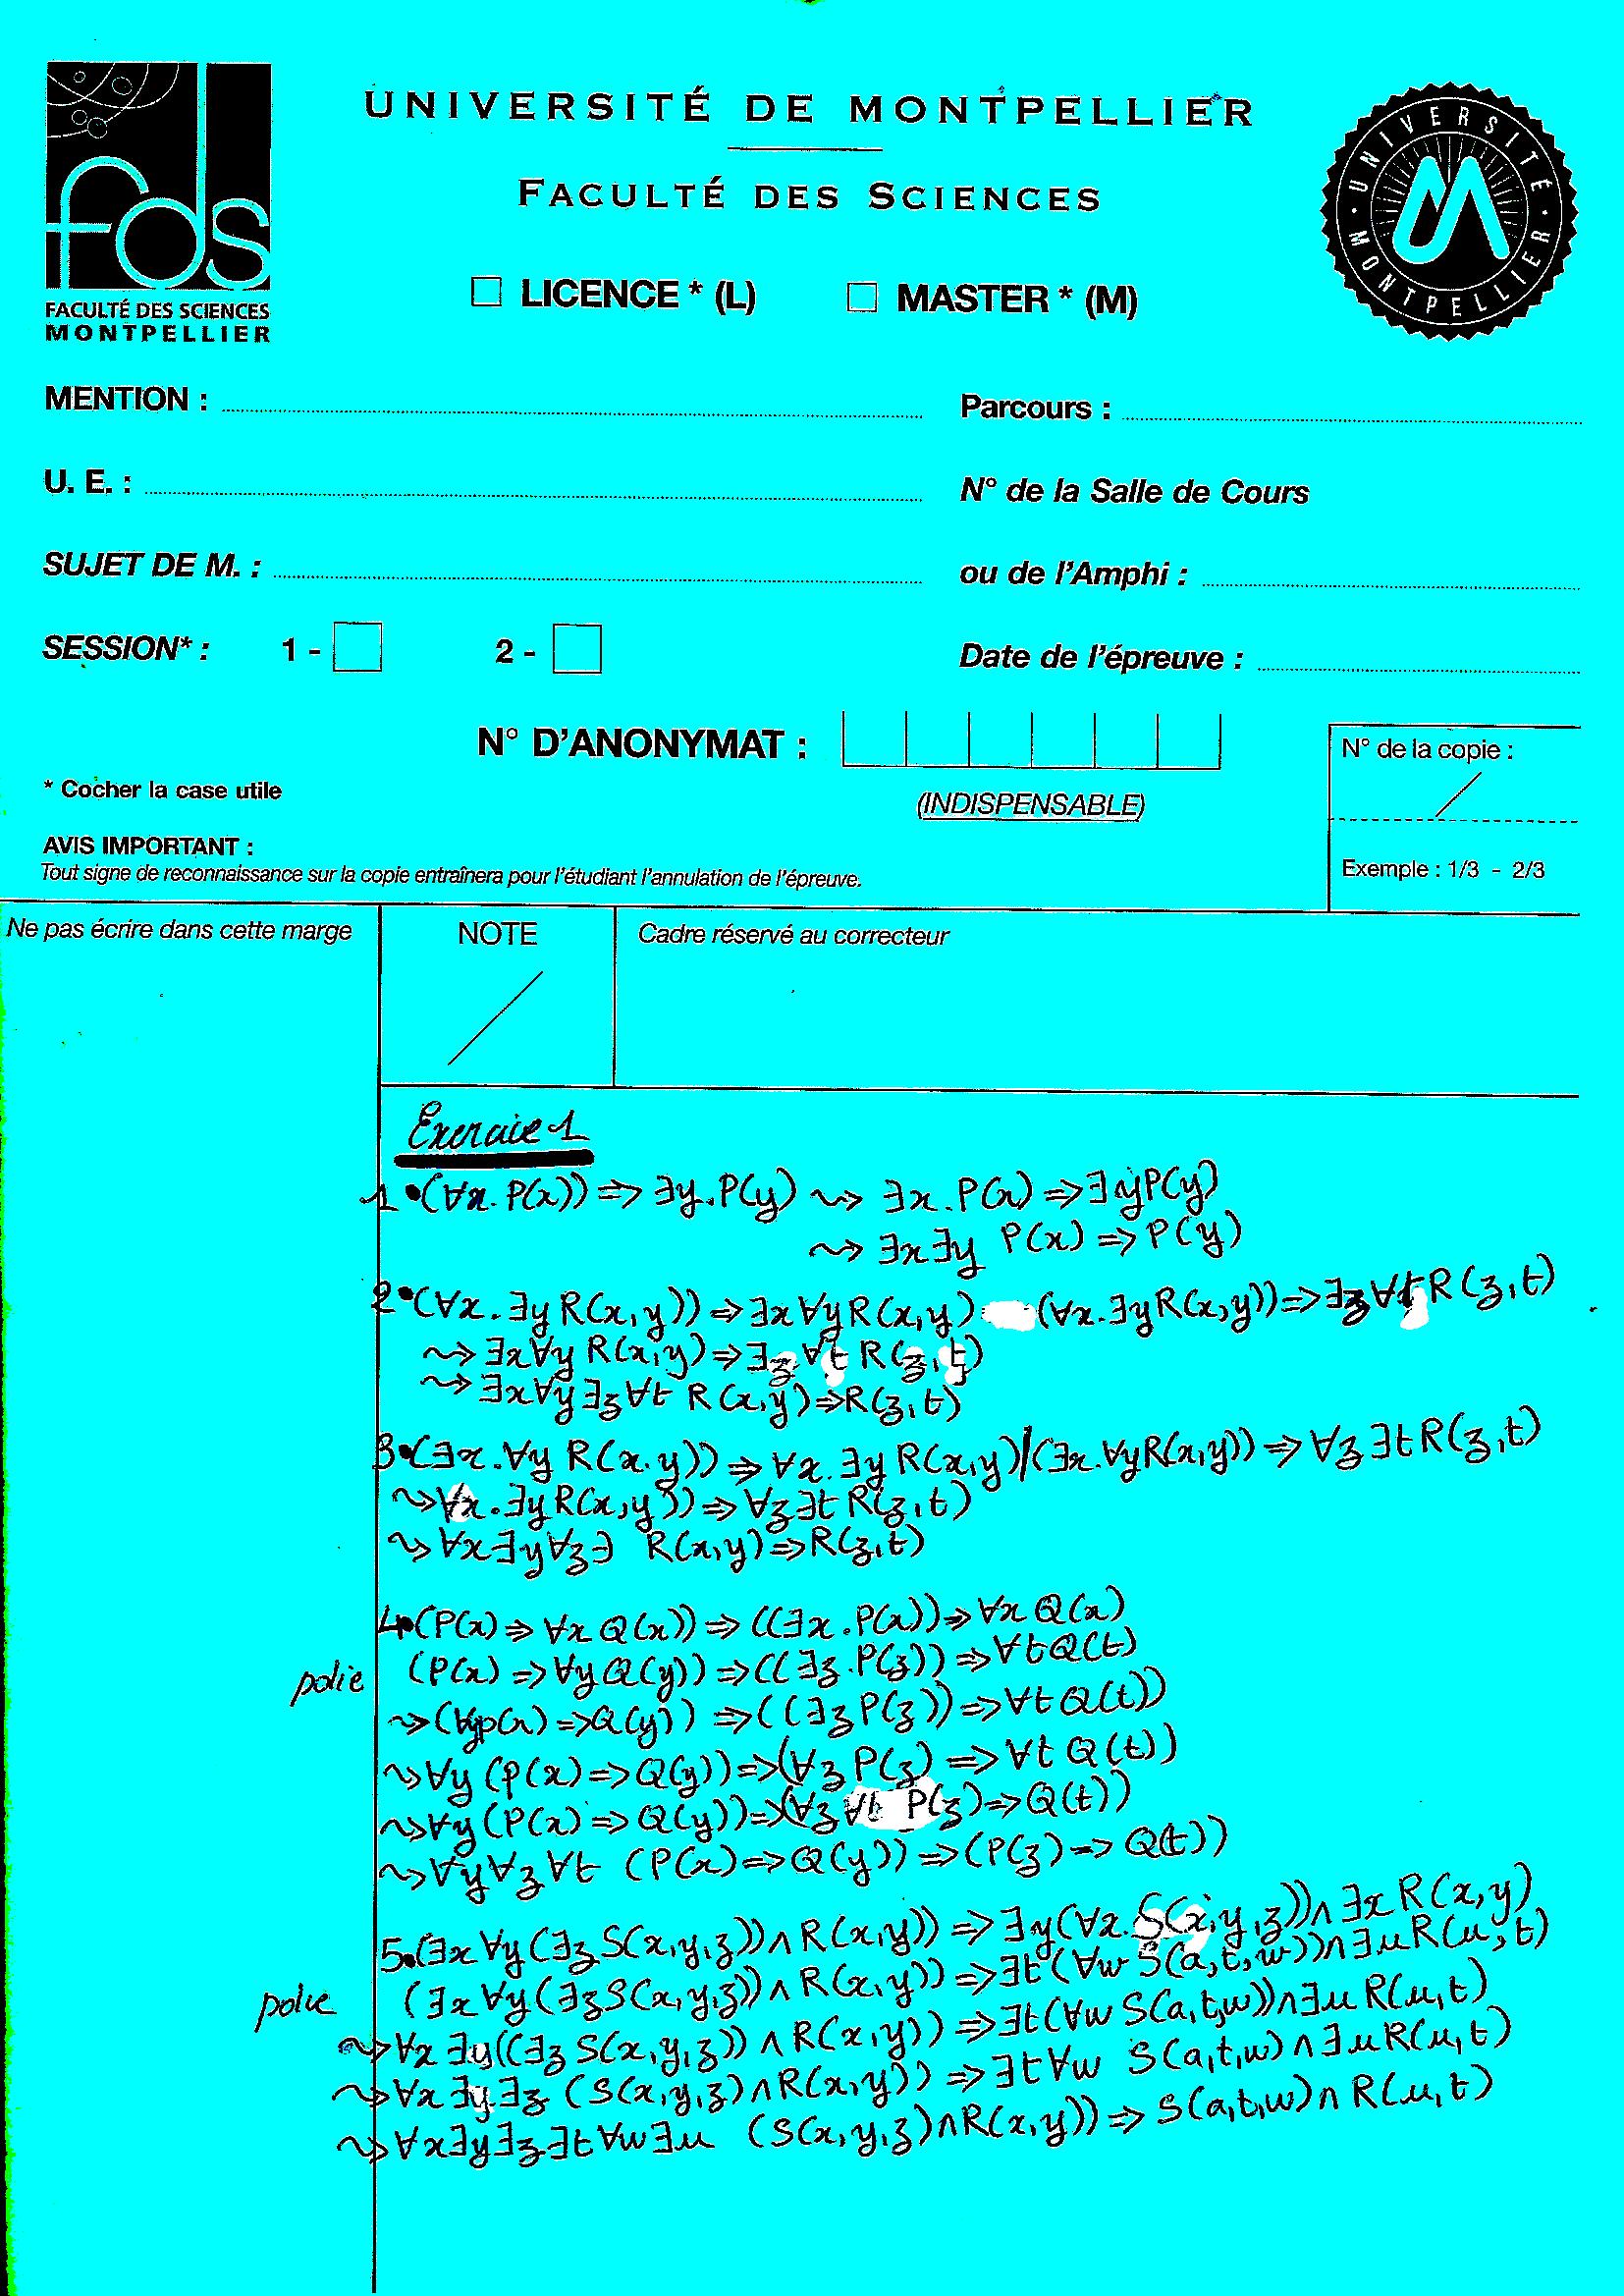 UNIVERSITÉ DE MONTPELLIER
FACULTÉ DES SCIENCES
fds
FACULTÉ DES SCIENCES
MONTPELLIER
UNIVERSITÉ · MONTPELLIER ·
LICENCE * (L) MASTER * (M)
MENTION : Parcours :
U. E. : N° de la Salle de Cours
SUJET DE M. : ou de l'Amphi :
SESSION* : 1 - 2 - Date de l'épreuve :
N° D'ANONYMAT : N° de la copie :
* Cocher la case utile (INDISPENSABLE) /
AVIS IMPORTANT : Exemple : 1/3 - 2/3
Tout signe de reconnaissance sur la copie entraînera pour l'étudiant l'annulation de l'épreuve.
Ne pas écrire dans cette marge NOTE Cadre réservé au correcteur
Exercice 1
1•(∀x. P(x)) => ∃y.P(y) ⇝ ∃x.P(x) => ∃yP(y)
⇝ ∃x∃y P(x) => P(y)
2•(∀x.∃y R(x,y)) => ∃x∀yR(x,y) (∀x.∃yR(x,y)) => ∃z∀tR(z,t)
⇝ ∃x∀y R(x,y) => ∃z∀t R(z,t)
⇝ ∃x∀y∃z∀t R(x,y) => R(z,t)
3•(∃x.∀y R(x.y)) => ∀x.∃y R(x,y)/(∃x.∀yR(x,y)) => ∀z∃tR(z,t)
⇝ ∀x.∃yR(x,y)) => ∀z∃t R(z,t)
⇝ ∀x∃y∀z∃ R(x,y) => R(z,t)
4•(P(x) => ∀x Q(x)) => ((∃x.P(x)) => ∀x Q(x)
polie (P(x) => ∀yQ(y)) => ((∃z.P(z)) => ∀tQ(t)
⇝ (∀yp(x) => Q(y)) => ((∃zP(z)) => ∀tQ(t))
⇝ ∀y (P(x) => Q(y)) => (∀z P(z) => ∀t Q(t))
⇝ ∀y (P(x) => Q(y)) => (∀z ∀t P(z) => Q(t))
⇝ ∀y∀z∀t (P(x) => Q(y)) => (P(z) => Q(t))
5•(∃x∀y(∃zS(x,y,z))∧R(x,y)) => ∃y(∀x.S(x,y,z))∧∃xR(x,y)
polie (∃x∀y(∃zS(x,y,z))∧R(x,y)) => ∃t(∀w S(a,t,w))∧∃uR(u,t)
⇝ ∀x∃y((∃z S(x,y,z))∧R(x,y)) => ∃t(∀w S(a,t,w))∧∃u R(u,t)
⇝ ∀x∃y∃z (S(x,y,z)∧R(x,y)) => ∃t∀w S(a,t,w)∧∃uR(u,t)
⇝ ∀x∃y∃z∃t∀w∃u (S(x,y,z)∧R(x,y)) => S(a,t,w)∧R(u,t)